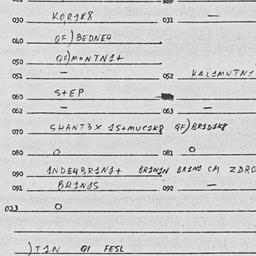 030 KOR1K8 031 —
040 QF)BEDNE4
050 QF)MONTN1+
051 — 052 KAL1MUTN1
060 S+EP
062 — 063 —
070 SHANT3X 1S+MUC1K8 QF)BR1D1K8
080 O 081 O
090 1NDE4BR1N1+ BR1N1N BR1N1 CM ZDRO
091 BR1N1S 092 —
023 O
)T1N Q1 FESL